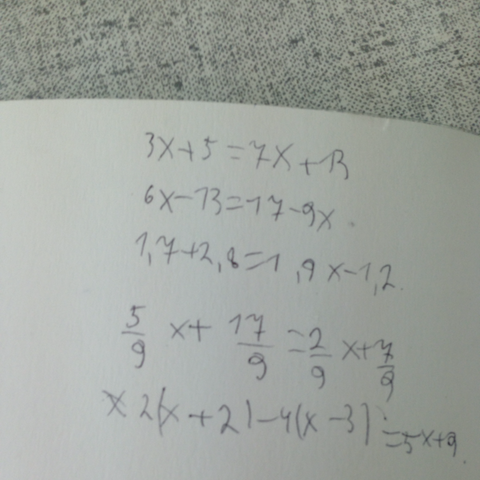 3x+5=7x+13
6x-13=17-9x.
1,7+2,8=1,9x-1,2.
5/9 x+ 17/9 =2/9 x+7/9
x 2(x+2)-4(x-3)=5x+9.